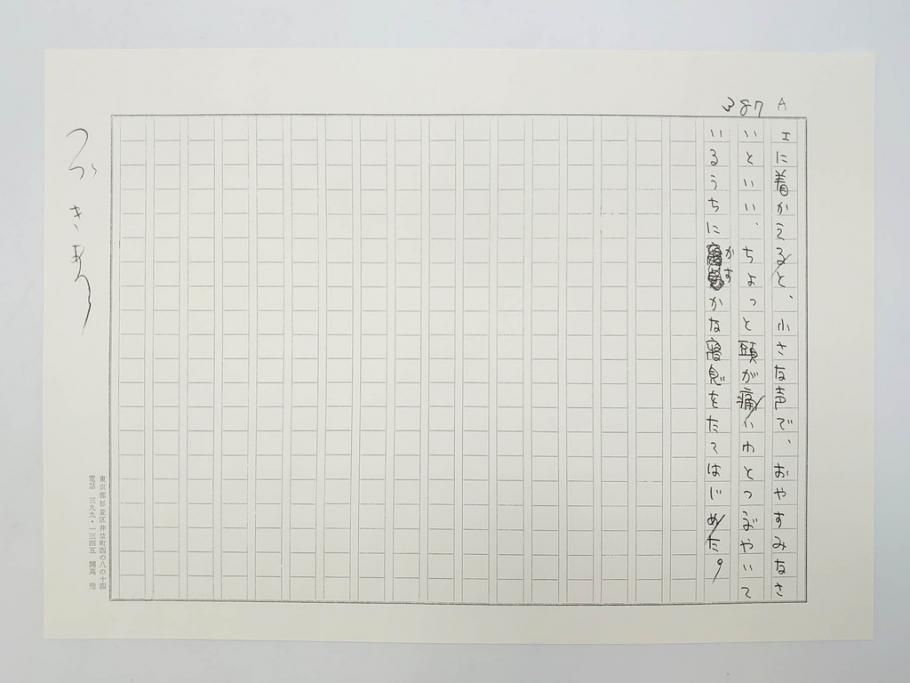 387 A
エに着かえると、小さな声で、おやすみなさ
いといい、ちょっと頭が痛いわとつぶやいて
いるうちにかすかな寝息をたてはじめた。
つづきあり
東京都杉並区井草町四の八の十四
電話 三九九・一三四五 開高 健